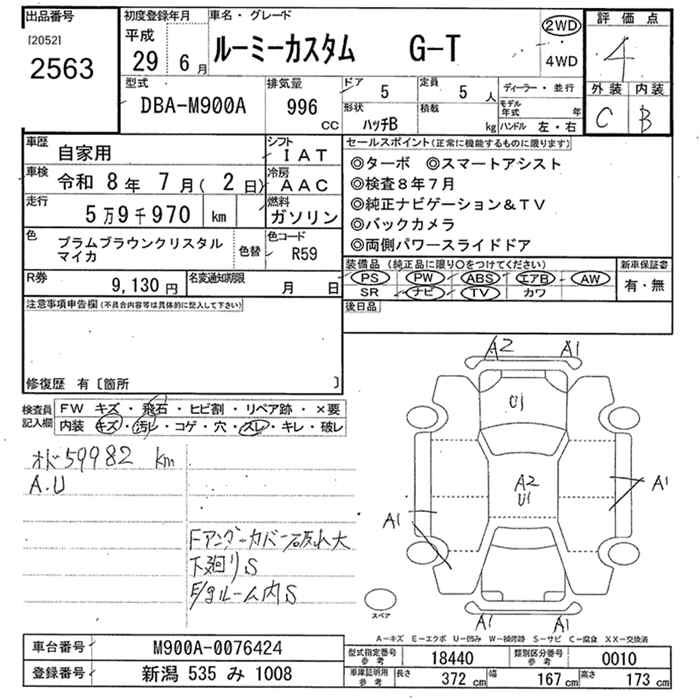 出品番号
[2052]
2563
初度登録年月
平成
29 6月
車名・グレード
ルーミーカスタム G-T
2WD
4WD
評価点
4
外装 内装
C B
型式
DBA-M900A
排気量
996
CC
ドア
5
定員
5 人
形状
ハッチB
積載
kg
ディーラー・並行
モデル年式 年
ハンドル 左・右
車歴
自家用
シフト
IAT
車検
令和 8年 7月( 2日)
冷房
AAC
走行
5万9千970 km
燃料
ガソリン
色
プラムブラウンクリスタル
マイカ
色替
色コード
R59
R券
9,130円
名変通知期限
月 日
セールスポイント(正常に機能するものに限ります)
◎ターボ ◎スマートアシスト
◎検査8年7月
◎純正ナビゲーション&TV
◎バックカメラ
◎両側パワースライドドア
装備品(純正品に限り○をつけてください)
PS PW ABS エアB AW
SR ナビ TV カワ
新車保証書
有・無
後日品
注意事項申告欄(不具合内容等は具体的に記入して下さい)
修復歴 有〔箇所 〕
検査員
記入欄
FW キズ・飛石・ヒビ割・リペア跡・×要
内装 キズ・汚れ・コゲ・穴・スレ・キレ・破レ
オド59982 km
A.U
Fアンダーカバー破れ大
下廻りS
E/gルーム内S
A2 A1
U1
A2
U1
A1
A1
A1 A1
スペア
A-キズ E-エクボ U-凹み W-補修跡 S-サビ C-腐食 XX-交換済
車台番号
M900A-0076424
登録番号
新潟 535 み 1008
型式指定番号
参考
18440
類別区分番号
参考
0010
車庫証明用
参考
長さ
372 cm
幅
167 cm
高さ
173 cm